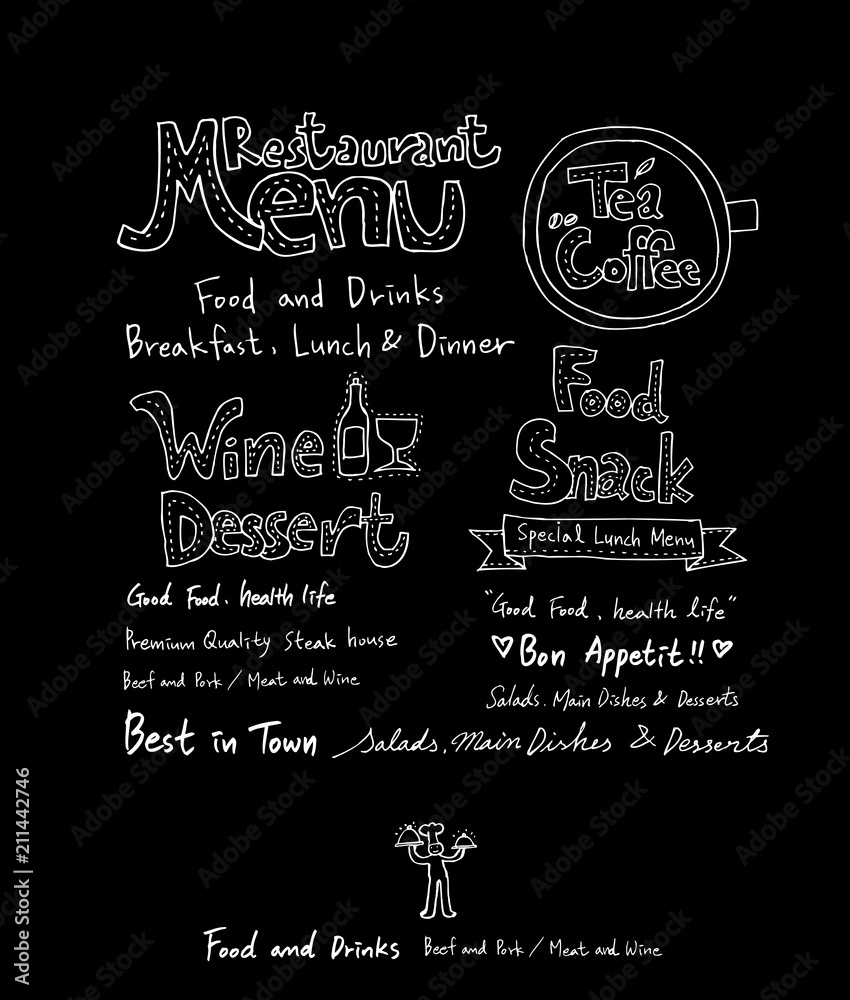 Restaurant
Menu
Food and Drinks
Breakfast, Lunch & Dinner
Tea
Coffee
Wine
Dessert
Food
Snack
Special Lunch Menu
Good Food, health life
Premium Quality Steak house
Beef and Pork / Meat and Wine
"Good Food, health life"
Bon Appetit!!
Salads. Main Dishes & Desserts
Best in Town
Salads, Main Dishes & Desserts
Food and Drinks
Beef and Pork / Meat and Wine
Adobe Stock | #211442746
Adobe Stock